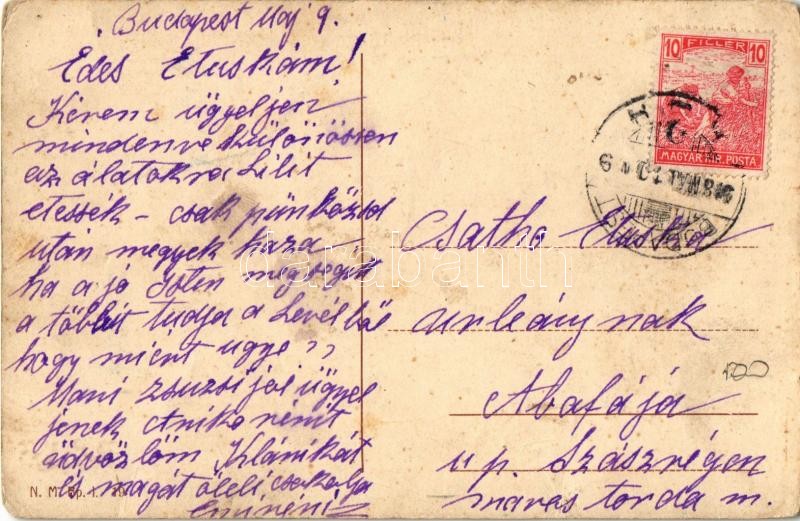 Budapest Maj 9.
Edes Etuskám!
Kérem ügyeljen
mindenre külömössen
az álatokra Lilit
etessék – csak pünközsd
után megyek haza
ha a jó Isten megsegit
a többit tudja a Levélböl
hogy miért ugye??
Mari Zsuzsi jól ügyel
jenek, Aniko nénit
üdvözlöm, Klárikát
és magát öleli, csokolja
10 FILLÉR 10
MAGYAR KIR. POSTA
Csatho Etuska
urleánynak
Abafája
u p. Szászrégen
maros torda m.
120
darabanth